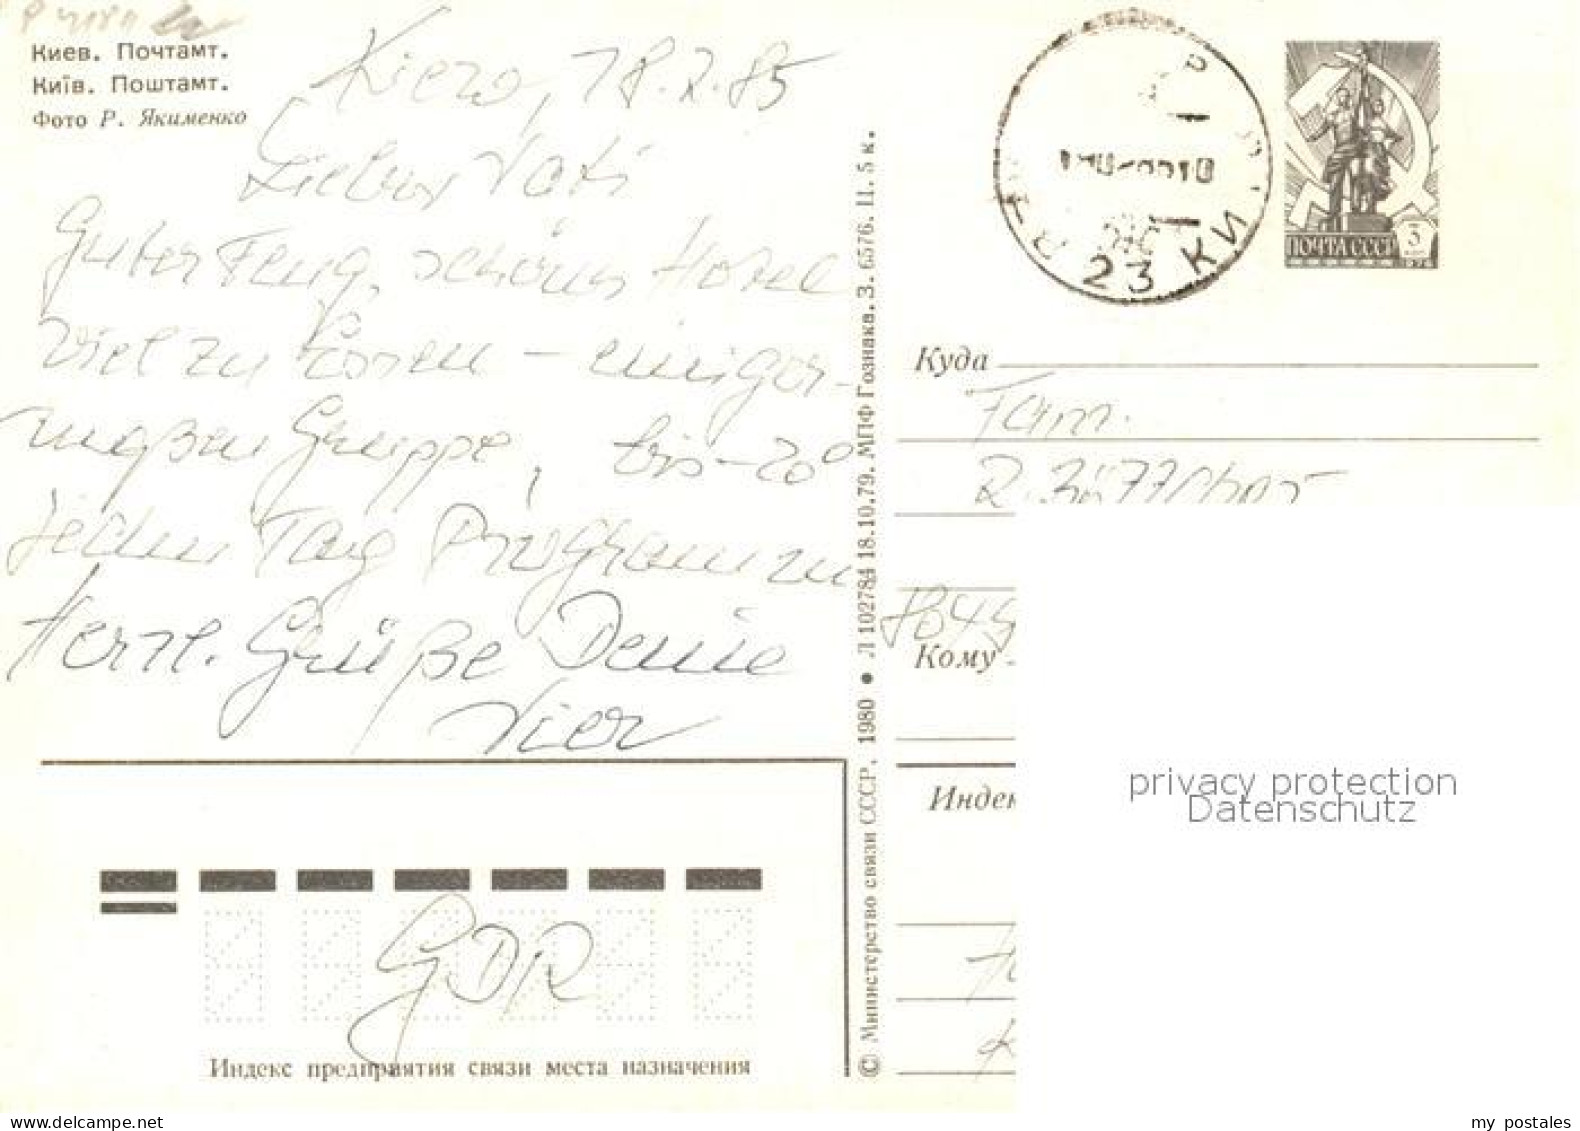 Киев. Почтамт.
Київ. Поштамт.
Фото Р. Якименко
Kiew, 18.2.85
Lieber Vati
Guter Flug, schönes Hotel
Viel zu Essen – einiger-
maßen Gruppe, bis -20°
Jeden Tag Programm
Herzl. Grüße Deine
Vier
GDR
Индекс предприятия связи места назначения
© Министерство связи СССР, 1980 • Л 102784 18.10.79. МПФ Гознака. З. 6576. Ц. 5 к.
23 КИ
ПОЧТА СССР
3
1976
Куда
Fam.
R. Böttcher
Кому
Индек
privacy protection
Datenschutz
www.delcampe.net
my_postales